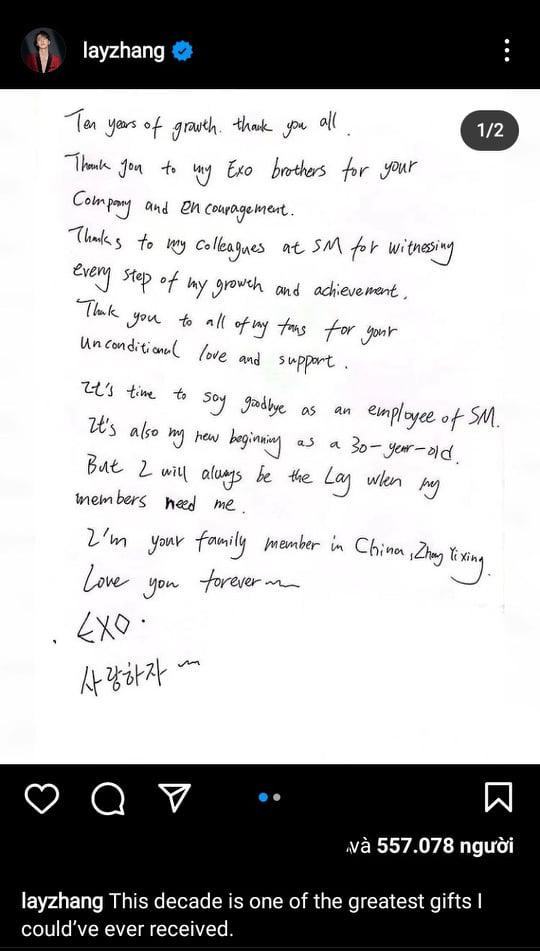 layzhang
1/2
Ten years of growth. thank you all.
Thank you to my Exo brothers for your
Company and encouragement.
Thanks to my colleagues at SM for witnessing
every step of my growth and achievement.
Thank you to all of my fans for your
unconditional love and support.
It's time to say goodbye as an employee of SM.
It's also my new beginning as a 30-year-old.
But I will always be the Lay when my
members need me.
I'm your family member in China, Zhang Yixing.
Love you forever~
EXO.
사랑하자 ~
và 557.078 người
layzhang This decade is one of the greatest gifts I
could've ever received.